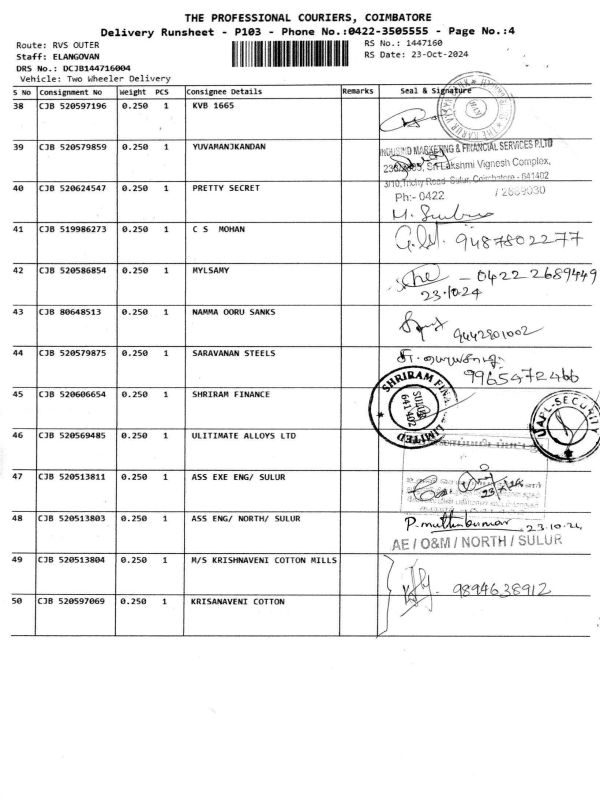 THE PROFESSIONAL COURIERS, COIMBATORE
Delivery Runsheet - P103 - Phone No.:0422-3505555 - Page No.:4
Route: RVS OUTER
RS No.: 1447160
Staff: ELANGOVAN
RS Date: 23-Oct-2024
DRS No.: DCJB144716004
Vehicle: Two Wheeler Delivery
S No Consignment No Weight PCS Consignee Details Remarks Seal & Signature
38 CJB 520597196 0.250 1 KVB 1665
39 CJB 520579859 0.250 1 YUVAMANJKANDAN
INDUSIND MARKETING & FINANCIAL SERVICES P.LTD
Sri Lakshmi Vignesh Complex,
40 CJB 520624547 0.250 1 PRETTY SECRET
3/10, Trichy Road, Sulur, Coimbatore - 641402
Ph:- 0422 / 2689030
41 CJB 519986273 0.250 1 C S MOHAN
9487802277
42 CJB 520586854 0.250 1 MYLSAMY
- 0422 2689449
23.10.24
43 CJB 80648513 0.250 1 NAMMA OORU SANKS
9442801002
44 CJB 520579875 0.250 1 SARAVANAN STEELS
9965472466
45 CJB 520606654 0.250 1 SHRIRAM FINANCE
SHRIRAM FINANCE LIMITED
SULUR
641 402
UAFL-SECURITY
46 CJB 520569485 0.250 1 ULITIMATE ALLOYS LTD
47 CJB 520513811 0.250 1 ASS EXE ENG/ SULUR
48 CJB 520513803 0.250 1 ASS ENG/ NORTH/ SULUR
P.muthukumar 23.10.24
AE / O&M / NORTH / SULUR
49 CJB 520513804 0.250 1 M/S KRISHNAVENI COTTON MILLS
9894638912
50 CJB 520597069 0.250 1 KRISANAVENI COTTON